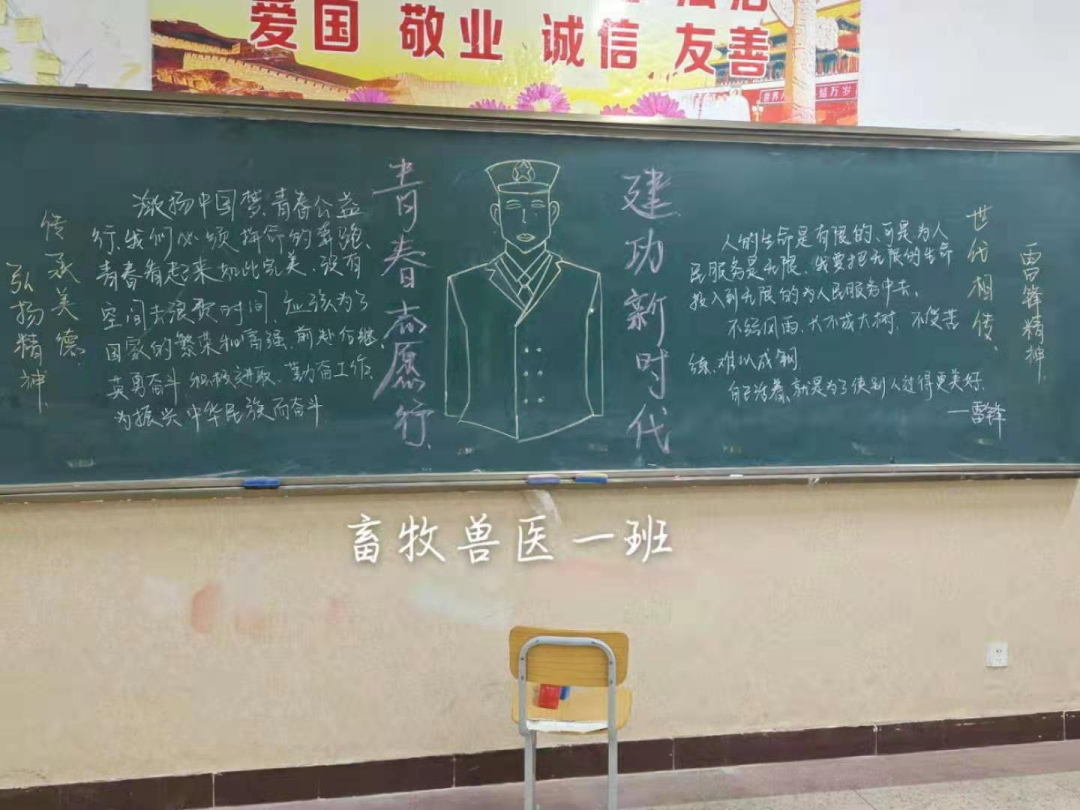 爱国 敬业 诚信 友善
弘扬精神
传承美德
激扬中国梦、青春公益
行、我们必须拼命的奔跑、
青春看起来如此完美、没有
空间去浪费时间、应该为了
国家的繁荣和富强、前赴继
英勇奋斗 积极进取、勤奋工作、
为振兴中华民族而奋斗
青春志愿行、
建功新时代
人的生命是有限的、可是为人
民服务是无限、我要把无限的生命
投入到无限的为人民服务中去、
不经风雨、不成大树、不受苦
练、难以成钢
自己活着、就是为了使别人过得更美好.
—雷锋
世代相传、
雷锋精神
畜牧兽医一班